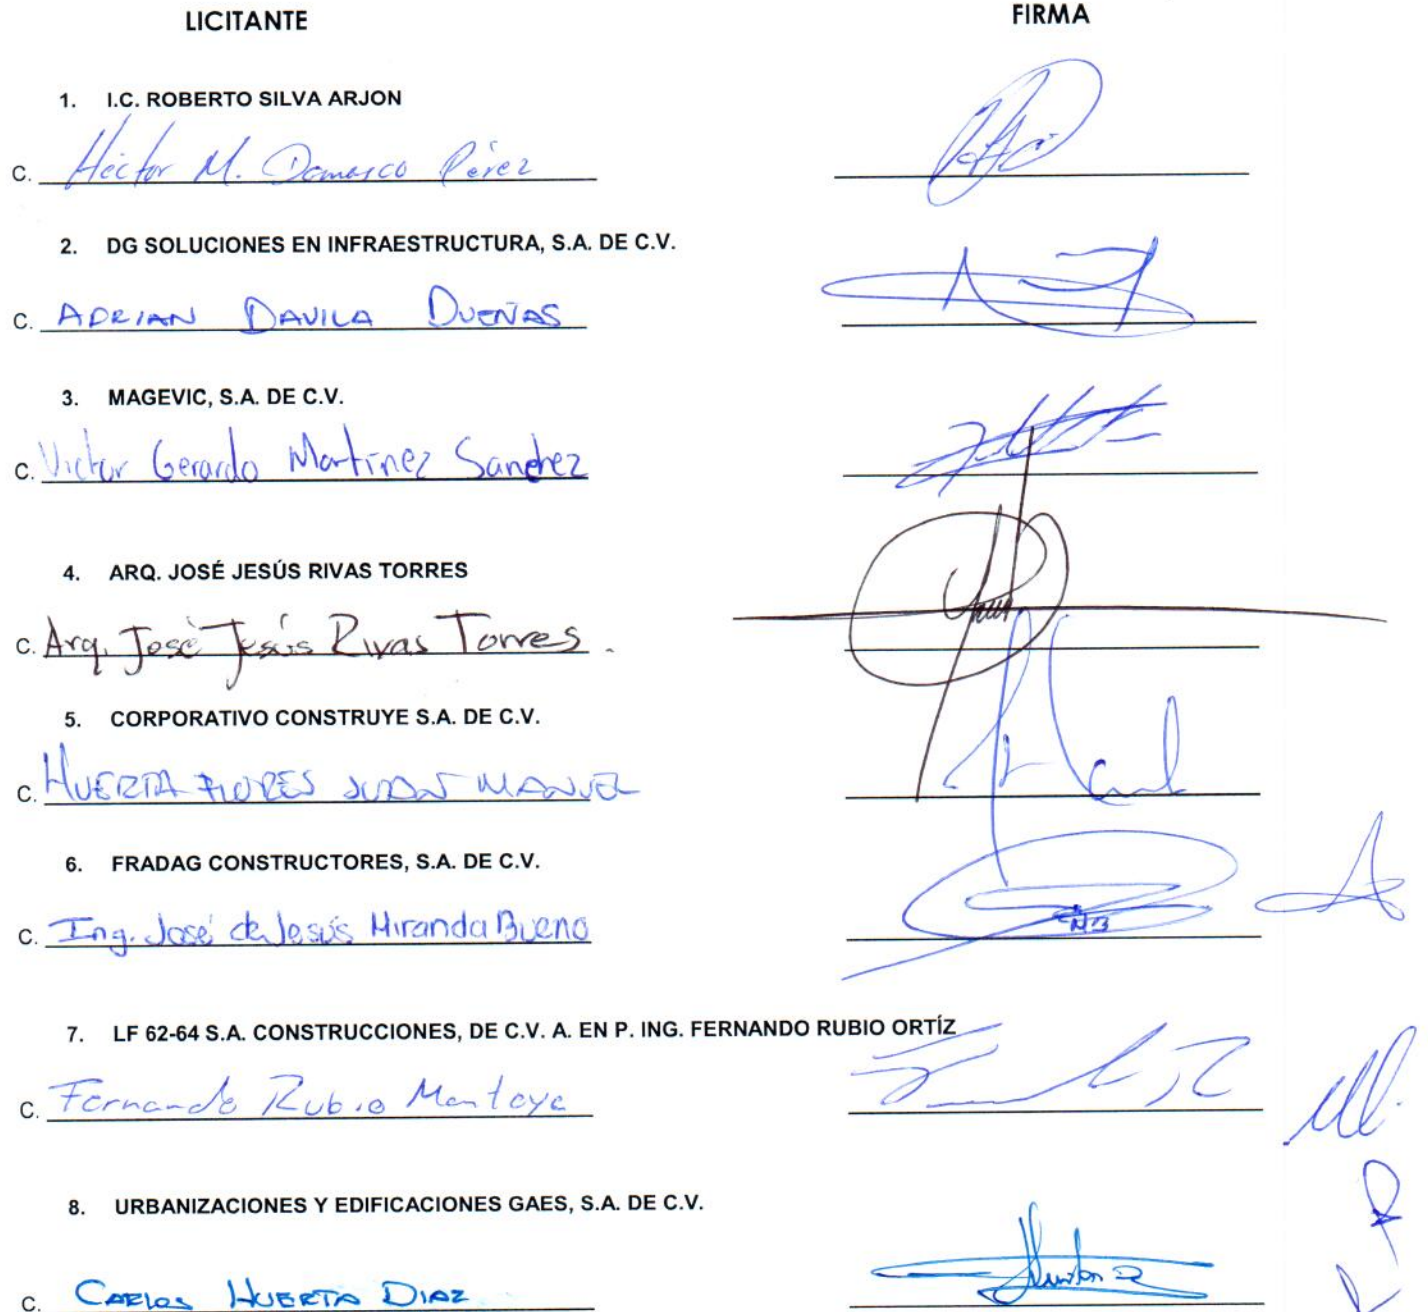 LICITANTE FIRMA
1. I.C. ROBERTO SILVA ARJON
C. Héctor M. Damasco Pérez
2. DG SOLUCIONES EN INFRAESTRUCTURA, S.A. DE C.V.
C. ADRIAN DAVILA DUEÑAS
3. MAGEVIC, S.A. DE C.V.
C. Victor Gerardo Martínez Sanchez
4. ARQ. JOSÉ JESÚS RIVAS TORRES
C. Arq. José Jesús Rivas Torres.
5. CORPORATIVO CONSTRUYE S.A. DE C.V.
C. HUERTA FLORES JUAN MANUEL
6. FRADAG CONSTRUCTORES, S.A. DE C.V.
C. Ing. José de Jesús Miranda Bueno
7. LF 62-64 S.A. CONSTRUCCIONES, DE C.V. A. EN P. ING. FERNANDO RUBIO ORTÍZ
C. Fernando Rubio Montoya
8. URBANIZACIONES Y EDIFICACIONES GAES, S.A. DE C.V.
C. CARLOS HUERTA DIAZ